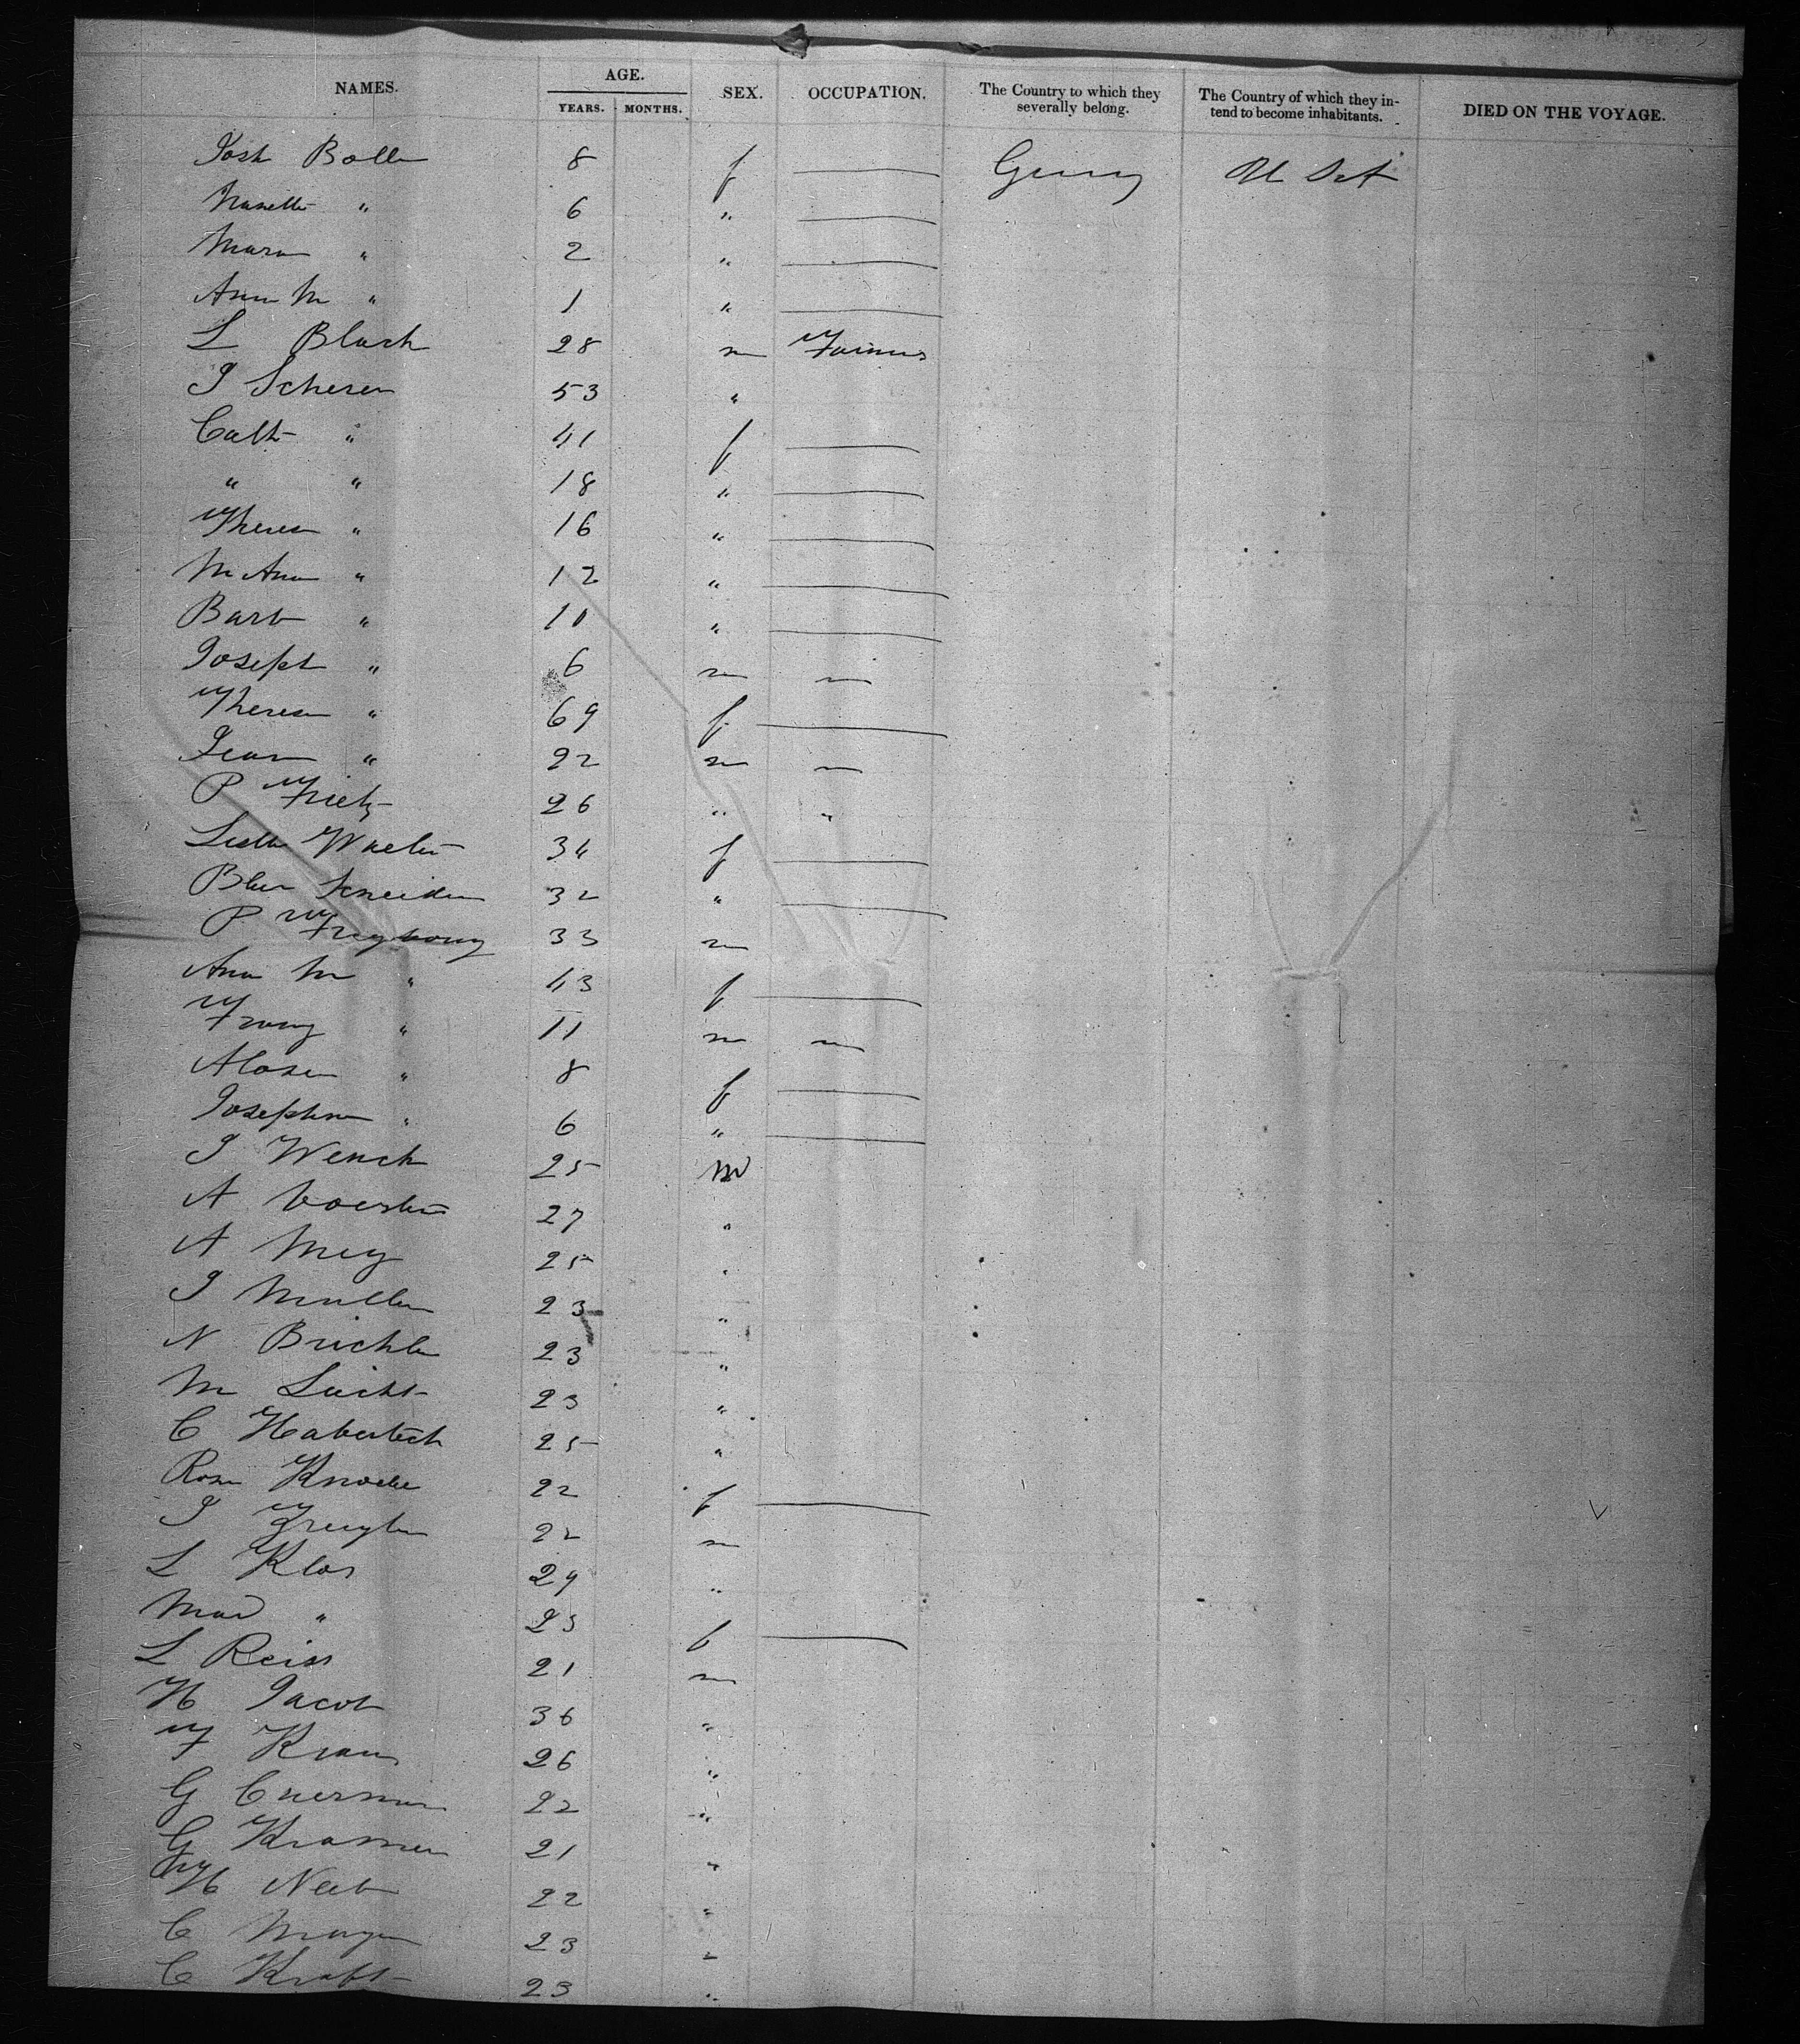 NAMES. AGE. YEARS. MONTHS. SEX. OCCUPATION. The Country to which they severally belong. The Country of which they intend to become inhabitants. DIED ON THE VOYAGE.
Josh Boller 8 f — Germy U S A
Nanette " 6 " —
Maria " 2 " —
Ann M " 1 " —
L Bloch 28 m Farmer
J Scherer 53 "
Cath " 41 f —
" " 18 " —
Theresa " 16 " —
M Ann " 12 " —
Barb " 10 " —
Joseph " 6 m —
Theresa " 69 f —
Jean " 22 m —
P 26 " "
34 f —
32 " —
P 33 m
Ann M " 43 f —
Franz " 11 m —
8 f —
Josephine " 6 " —
J Wench 25 m
A 27 "
A Mey 25 "
J Muller 23 "
N 23 "
M 23 "
C 25 "
Rosa 22 f —
J 22 m
L Klos 29 "
Mad " 23 f —
L Reiss 21 m
H Jacob 36 "
F Kraus 26 "
G 22 "
G Kramer 21 "
H Neeb 22 "
C Mayer 23 "
C Kraft 23 "